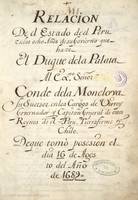 RELACION
De el Estado de el Peru
en los ocho Años de su Govierno que
haze
El Duque de la Palata
Al Ex.mo Señor
Conde de la Monclova
Su Succesor en los Cargos de Virrey
Governador y Capitan General de estos
Reynos de el Peru, Tierrafirme y
Chile.
De que tomó posesion el
dia 16 de Agos
to del Año
de 1689.